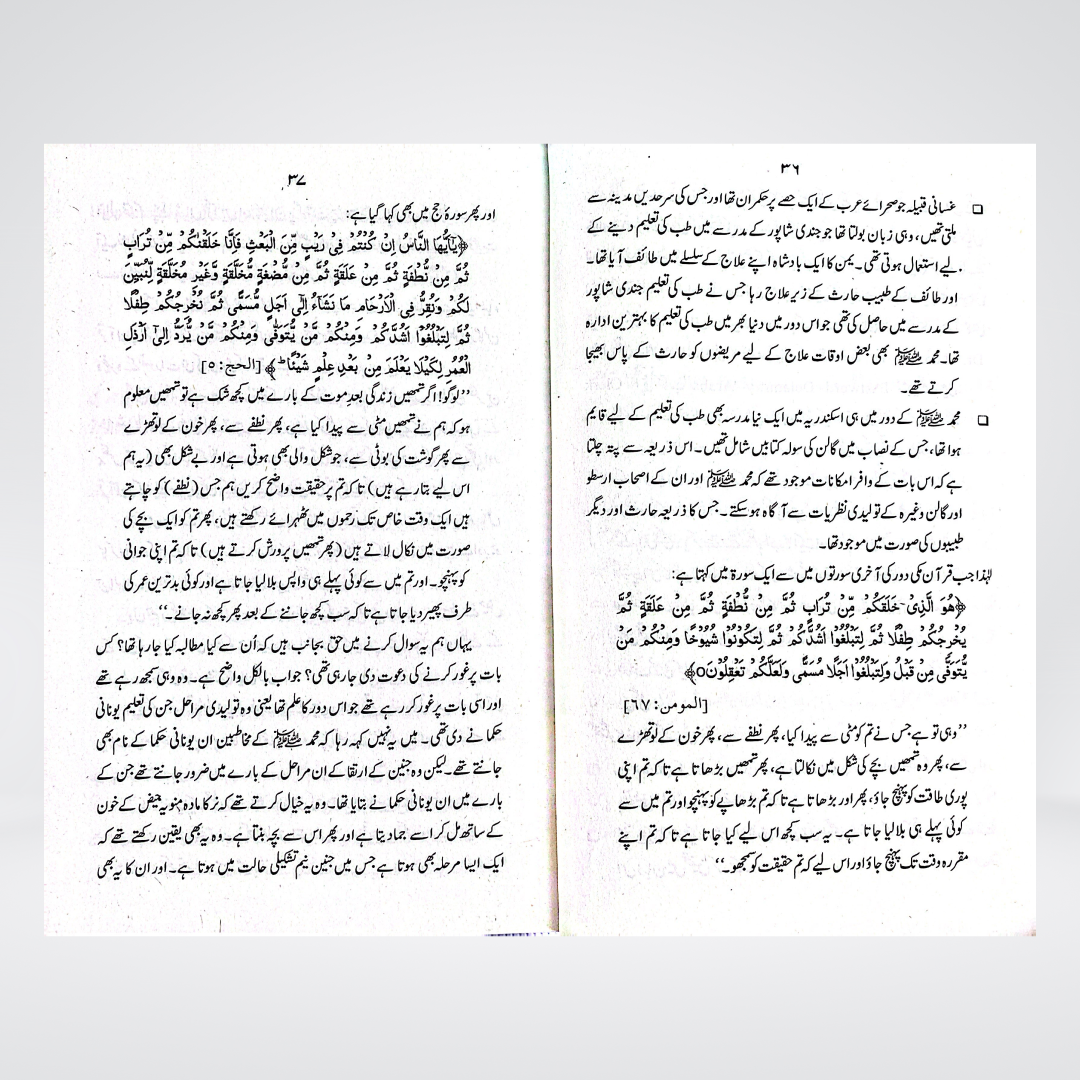 ۳۶
❑ غسانی قبیلہ جو صحرائے عرب کے ایک حصے پر حکمران تھا اور جس کی سرحدیں مدینہ سے
ملتی تھیں، وہی زبان بولتا تھا جو جندی شاپور کے مدرسے میں طب کی تعلیم دینے کے
لیے استعمال ہوتی تھی۔ یمن کا ایک بادشاہ اپنے علاج کے سلسلے میں طائف آیا تھا۔
اور طائف کے طبیب حارث کے زیر علاج رہا جس نے طب کی تعلیم جندی شاپور
کے مدرسے میں حاصل کی تھی جو اس دور میں دنیا بھر میں طب کی تعلیم کا بہترین ادارہ
تھا۔ محمد ﷺ بھی بعض اوقات علاج کے لیے مریضوں کو حارث کے پاس بھیجا
کرتے تھے۔
❑ محمد ﷺ کے دور میں ہی اسکندریہ میں ایک نیا مدرسہ بھی طب کی تعلیم کے لیے قایم
ہوا تھا، جس کے نصاب میں گالن کی سولہ کتابیں شامل تھیں۔ اس ذریعہ سے پتہ چلتا
ہے کہ اس بات کے وافر امکانات موجود تھے کہ محمد ﷺ اور ان کے اصحاب ارسطو
اور گالن وغیرہ کے تولیدی نظریات سے آگاہ ہو سکتے۔ جس کا ذریعہ حارث اور دیگر
طبیبوں کی صورت میں موجود تھا۔
لہٰذا جب قرآن مکی دور کی آخری سورتوں میں سے ایک سورۃ میں کہتا ہے:
﴿هُوَ الَّذِیْ خَلَقَكُمْ مِّنْ تُرَابٍ ثُمَّ مِنْ نُّطْفَةٍ ثُمَّ مِنْ عَلَقَةٍ ثُمَّ
یُخْرِجُكُمْ طِفْلًا ثُمَّ لِتَبْلُغُوْٓا اَشُدَّكُمْ ثُمَّ لِتَكُوْنُوْا شُیُوْخًا وَمِنْكُمْ مَّنْ
یُّتَوَفّٰی مِنْ قَبْلُ وَلِتَبْلُغُوْٓا اَجَلًا مُّسَمًّی وَّلَعَلَّكُمْ تَعْقِلُوْنَ٥﴾
[المومن: ۶۷]
’’وہی تو ہے جس نے تم کو مٹی سے پیدا کیا، پھر نطفے سے، پھر خون کے لوتھڑے
سے، پھر وہ تمھیں بچے کی شکل میں نکالتا ہے، پھر تمھیں بڑھاتا ہے تا کہ تم اپنی
پوری طاقت کو پہنچ جاؤ، پھر اور بڑھاتا ہے تا کہ تم بڑھاپے کو پہنچو اور تم میں سے
کوئی پہلے ہی بلا لیا جاتا ہے۔ یہ سب کچھ اس لیے کیا جاتا ہے تا کہ تم اپنے
مقررہ وقت تک پہنچ جاؤ اور اس لیے کہ تم حقیقت کو سمجھو۔‘‘
۳۷
اور پھر سورۂ حج میں بھی کہا گیا ہے:
﴿یٰٓاَیُّهَا النَّاسُ اِنْ كُنْتُمْ فِیْ رَیْبٍ مِّنَ الْبَعْثِ فَاِنَّا خَلَقْنٰكُمْ مِّنْ تُرَابٍ
ثُمَّ مِنْ نُّطْفَةٍ ثُمَّ مِنْ عَلَقَةٍ ثُمَّ مِنْ مُّضْغَةٍ مُّخَلَّقَةٍ وَّغَیْرِ مُخَلَّقَةٍ لِّنُبَیِّنَ
لَكُمْ وَنُقِرُّ فِی الْاَرْحَامِ مَا نَشَآءُ اِلٰٓی اَجَلٍ مُّسَمًّی ثُمَّ نُخْرِجُكُمْ طِفْلًا
ثُمَّ لِتَبْلُغُوْٓا اَشُدَّكُمْ وَمِنْكُمْ مَّنْ یُّتَوَفّٰی وَمِنْكُمْ مَّنْ یُّرَدُّ اِلٰٓی اَرْذَلِ
الْعُمُرِ لِكَیْلَا یَعْلَمَ مِنْ بَعْدِ عِلْمٍ شَیْئًا ط﴾ [الحج: ۵]
’’لوگو! اگر تمھیں زندگی بعد موت کے بارے میں کچھ شک ہے تو تمھیں معلوم
ہو کہ ہم نے تمھیں مٹی سے پیدا کیا ہے، پھر نطفے سے، پھر خون کے لوتھڑے
سے پھر گوشت کی بوٹی سے، جو شکل والی بھی ہوتی ہے اور بے شکل بھی (یہ ہم
اس لیے بتا رہے ہیں) تا کہ تم پر حقیقت واضح کریں ہم جس (نطفے) کو چاہتے
ہیں ایک وقت خاص تک رحموں میں ٹھہرائے رکھتے ہیں، پھر تم کو ایک بچے کی
صورت میں نکال لاتے ہیں (پھر تمھیں پرورش کرتے ہیں) تا کہ تم اپنی جوانی
کو پہنچو۔ اور تم میں سے کوئی پہلے ہی واپس بلا لیا جاتا ہے اور کوئی بدترین عمر کی
طرف پھیر دیا جاتا ہے تا کہ سب کچھ جاننے کے بعد پھر کچھ نہ جانے۔‘‘
یہاں ہم یہ سوال کرنے میں حق بجانب ہیں کہ اُن سے کیا مطالبہ کیا جا رہا تھا؟ کس
بات پر غور کرنے کی دعوت دی جا رہی تھی؟ جواب بالکل واضح ہے۔ وہ وہی سمجھ رہے تھے
اور اسی بات پر غور کر رہے تھے جو اس دور کا علم تھا یعنی وہ تولیدی مراحل جن کی تعلیم یونانی
حکما نے دی تھی۔ میں یہ نہیں کہہ رہا کہ محمد ﷺ کے مخاطبین ان یونانی حکما کے نام بھی
جانتے تھے۔ لیکن وہ جنین کے ارتقا کے ان مراحل کے بارے میں ضرور جانتے تھے جن کے
بارے میں ان یونانی حکما نے بتایا تھا۔ وہ یہ خیال کرتے تھے کہ نر کا مادہ منویہ حیض کے خون
کے ساتھ مل کر اسے جما دیتا ہے اور پھر اس سے بچہ بنتا ہے۔ وہ یہ بھی یقین رکھتے تھے کہ
ایک ایسا مرحلہ بھی ہوتا ہے جس میں جنین نیم تشکیلی حالت میں ہوتا ہے۔ اور ان کا یہ بھی